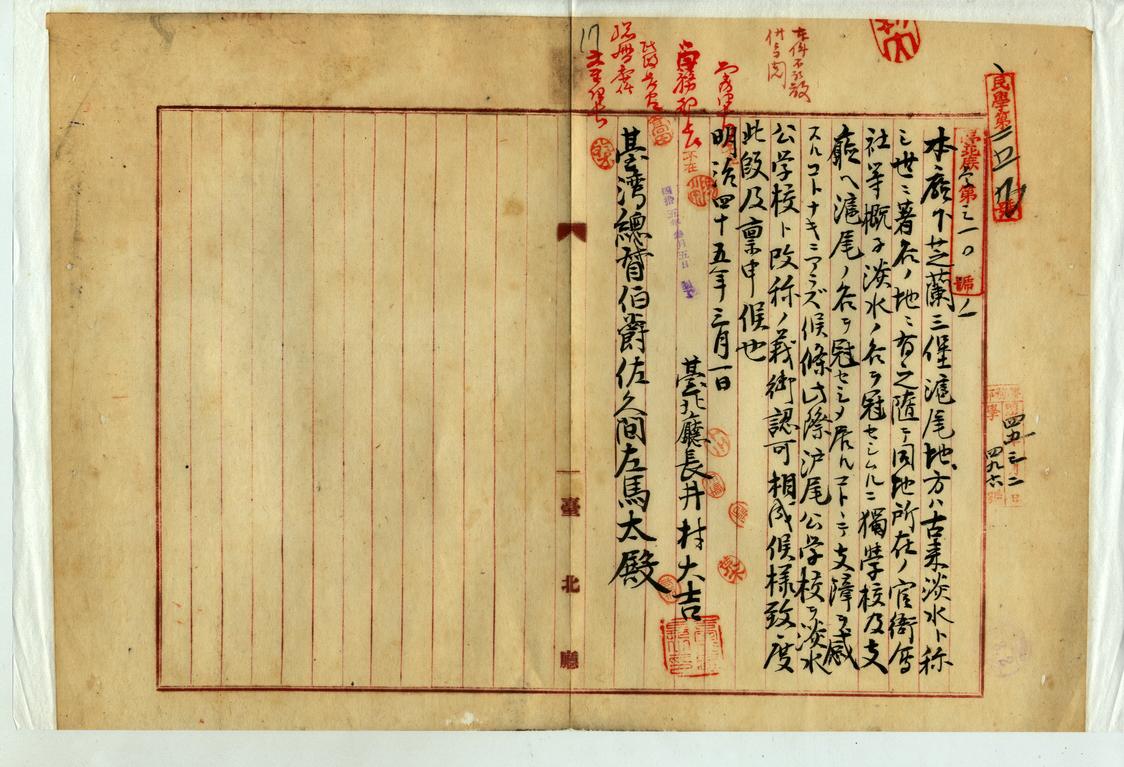 民學第二五九號
臺北庶學第三一〇號ノ一
本廳下芝蘭三堡滬尾地方ハ古来淡水ト称
シ世ニ著名ノ地ニ有之随テ同地所在ノ官衙
社等概子淡水ノ名ヲ冠セシムルニ獨學校及支
廳ヘ滬尾ノ名ヲ冠セシメ居ルコトニテ支障ヲ感
スルコトナキニアラズ候條此際沪尾公学校ヲ淡水
公学校ト改称ノ義御認可相成候様致度
此段及禀申候也
明治四十五年三月一日
臺北廳長井村大吉
臺灣總督伯爵佐久間左馬太殿
臺北廳
17
四五 三 二
四九六
不在